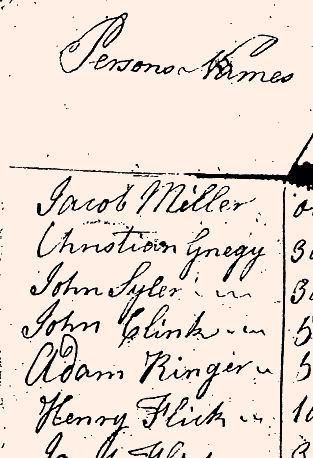 Persons Names
Jacob Miller
Christian Gnegy
John Syler
John Clink
Adam Ringer
Henry Flick